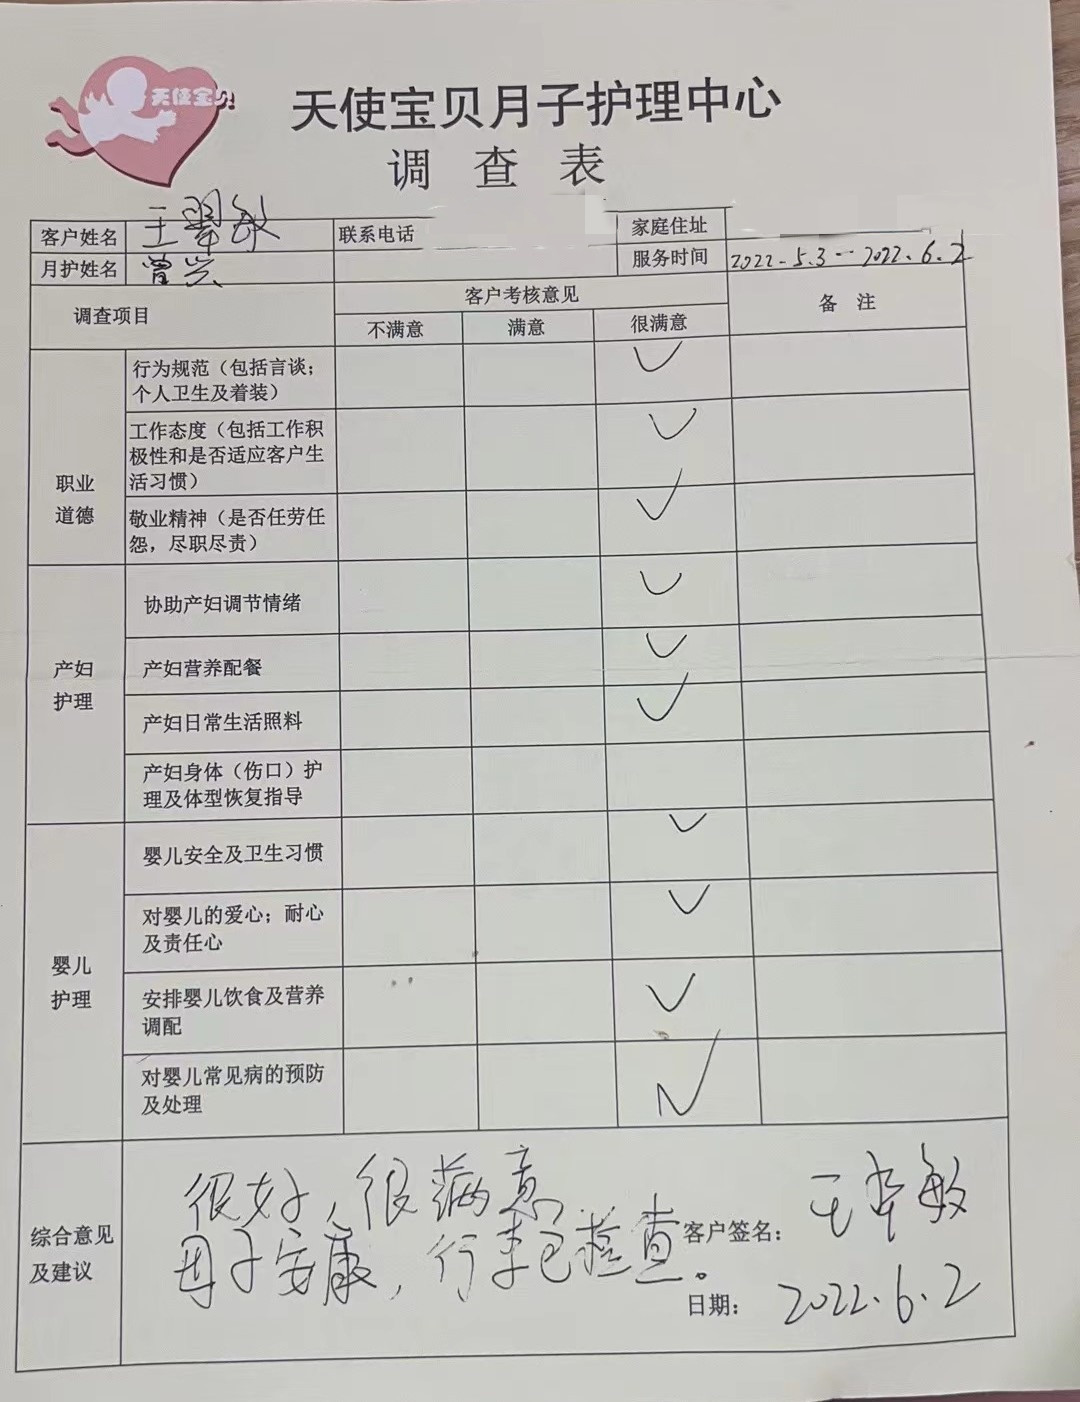 天使宝贝
天使宝贝月子护理中心
调 查 表
客户姓名 王翠敏 联系电话 家庭住址
月护姓名 曾兴 服务时间 2022.5.3--2022.6.2
调查项目 客户考核意见 备 注
不满意 满意 很满意
职业
道德
行为规范（包括言谈；
个人卫生及着装） ✓
工作态度（包括工作积
极性和是否适应客户生
活习惯） ✓
敬业精神（是否任劳任
怨，尽职尽责） ✓
产妇
护理
协助产妇调节情绪 ✓
产妇营养配餐 ✓
产妇日常生活照料 ✓
产妇身体（伤口）护
理及体型恢复指导
婴儿
护理
婴儿安全及卫生习惯 ✓
对婴儿的爱心；耐心
及责任心 ✓
安排婴儿饮食及营养
调配 ✓
对婴儿常见病的预防
及处理 ✓
综合意见
及建议
很好，很满意
母子安康，行李已检查。
客户签名： 王翠敏
日期： 2022.6.2